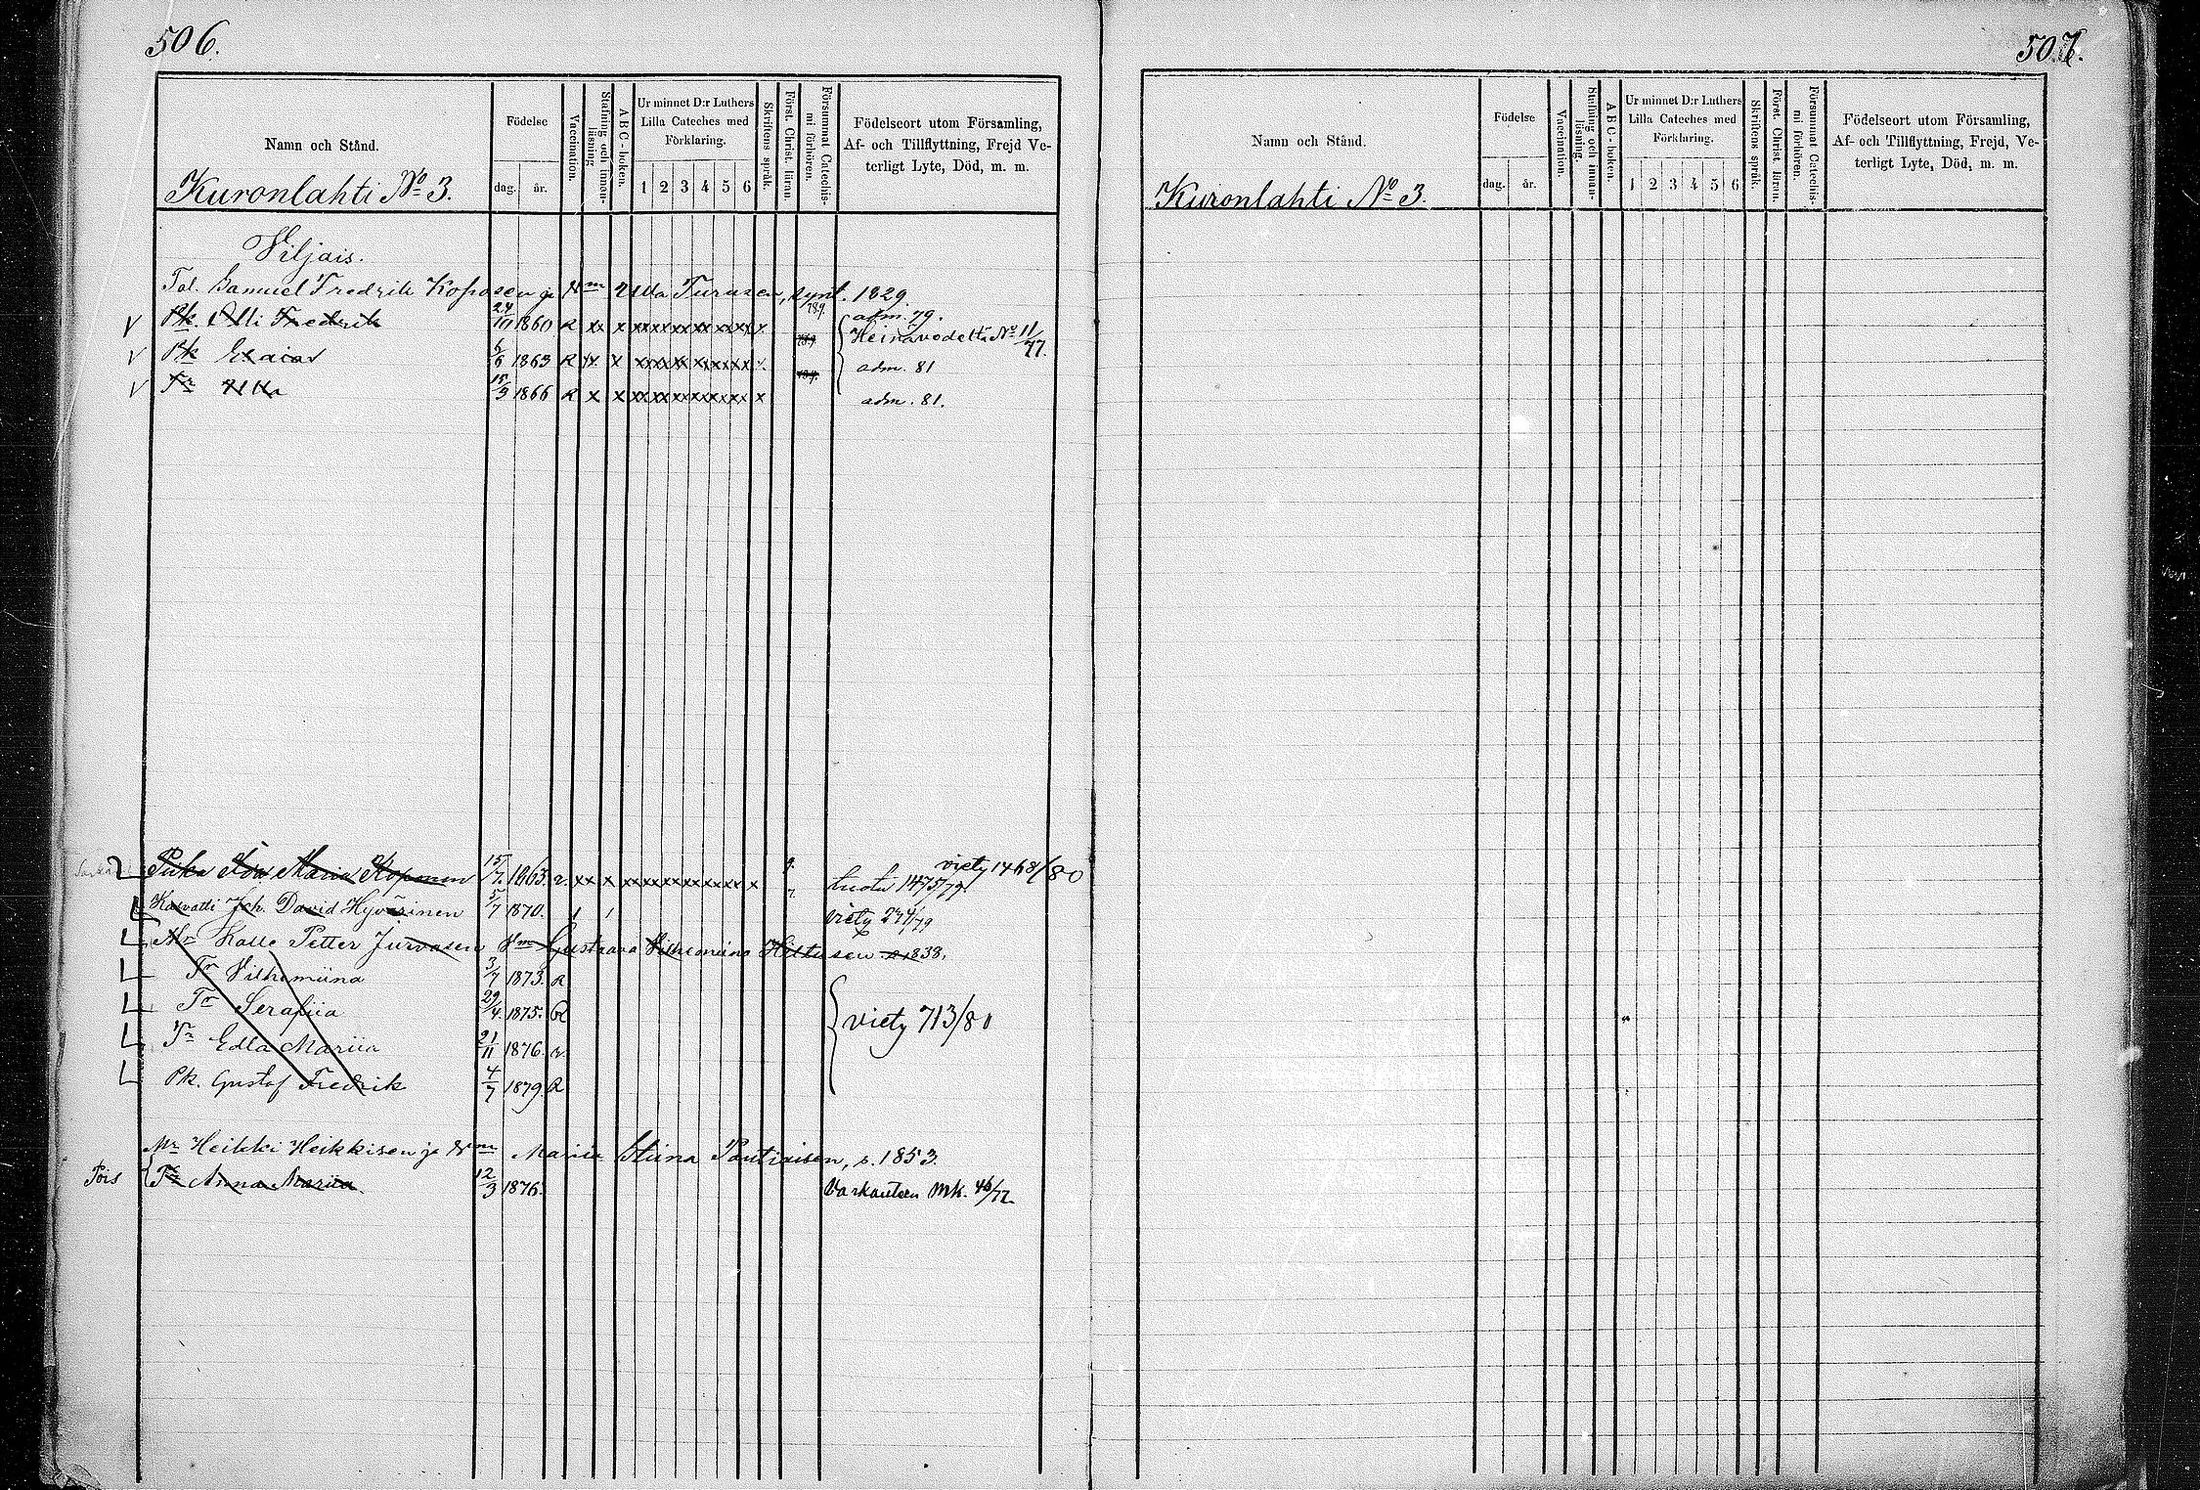 506.
Namn och Stånd.
Födelse
dag. år.
Vaccination.
Stafning och innan-läsning.
ABC-boken.
Ur minnet D:r Luthers
Lilla Cateches med
Förklaring.
1 2 3 4 5 6
Skriftens språk.
Först. Christ. läran.
Försummat Catechis-mi förhören.
Födelseort utom Församling,
Af- och Tillflyttning, Frejd Ve-
terligt Lyte, Död, m. m.
Kuronlahti No 3.
Viljais.
Tal. Samuel Fredrik Koposen ja Vm Ulla Turusen, synt. 1829.
Pk. Olli Fredrik 24/10 1860 R xx x xx xx xx xx xx xx x. adm. 79.
Heinävedeltä No 11/77.
Pk Esaias 6/6 1863 R x x xx xx xx xx xx xx adm. 81
Tr Ulla 15/3 1866 R x x xx xx xx xx xx xx x adm. 81.
Piika Ida Maria Koponen 15/7. 1863. xx x xx xx xx xx xx x tuotu 1475/79. viety 1468/80
Kasvatti Joh. David Hyvärinen 5/7 1870. viety 274/79
Mr Kalle Petter Jurvasen Vm Gustaava Vilhelmiina Hiltusen s. 1838.
Tr Vilhemiina 3/7 1873. R
Tr Serafiia 29/4. 1875. R
viety 713/80
Tr Edla Mariia 21/11 1876. R
Pk. Gustaf Fredrik 4/7 1879. R
Mr Heikki Heikkisen ja Vm Maria Stiina Pantiaisen, s. 1853.
Pois Tr Anna Mariia 12/3 1876. Varkauteen Mk. 46/77
507.
Namn och Stånd.
Födelse
dag. år.
Vaccination.
Stafning och innan-läsning.
ABC-boken.
Ur minnet D:r Luthers
Lilla Cateches med
Förklaring.
1 2 3 4 5 6
Skriftens språk.
Först. Christ läran.
Försummat Catechis-mi förhören.
Födelseort utom Församling,
Af- och Tillflyttning, Frejd, Ve-
terligt Lyte, Död, m. m.
Kuronlahti No 3.